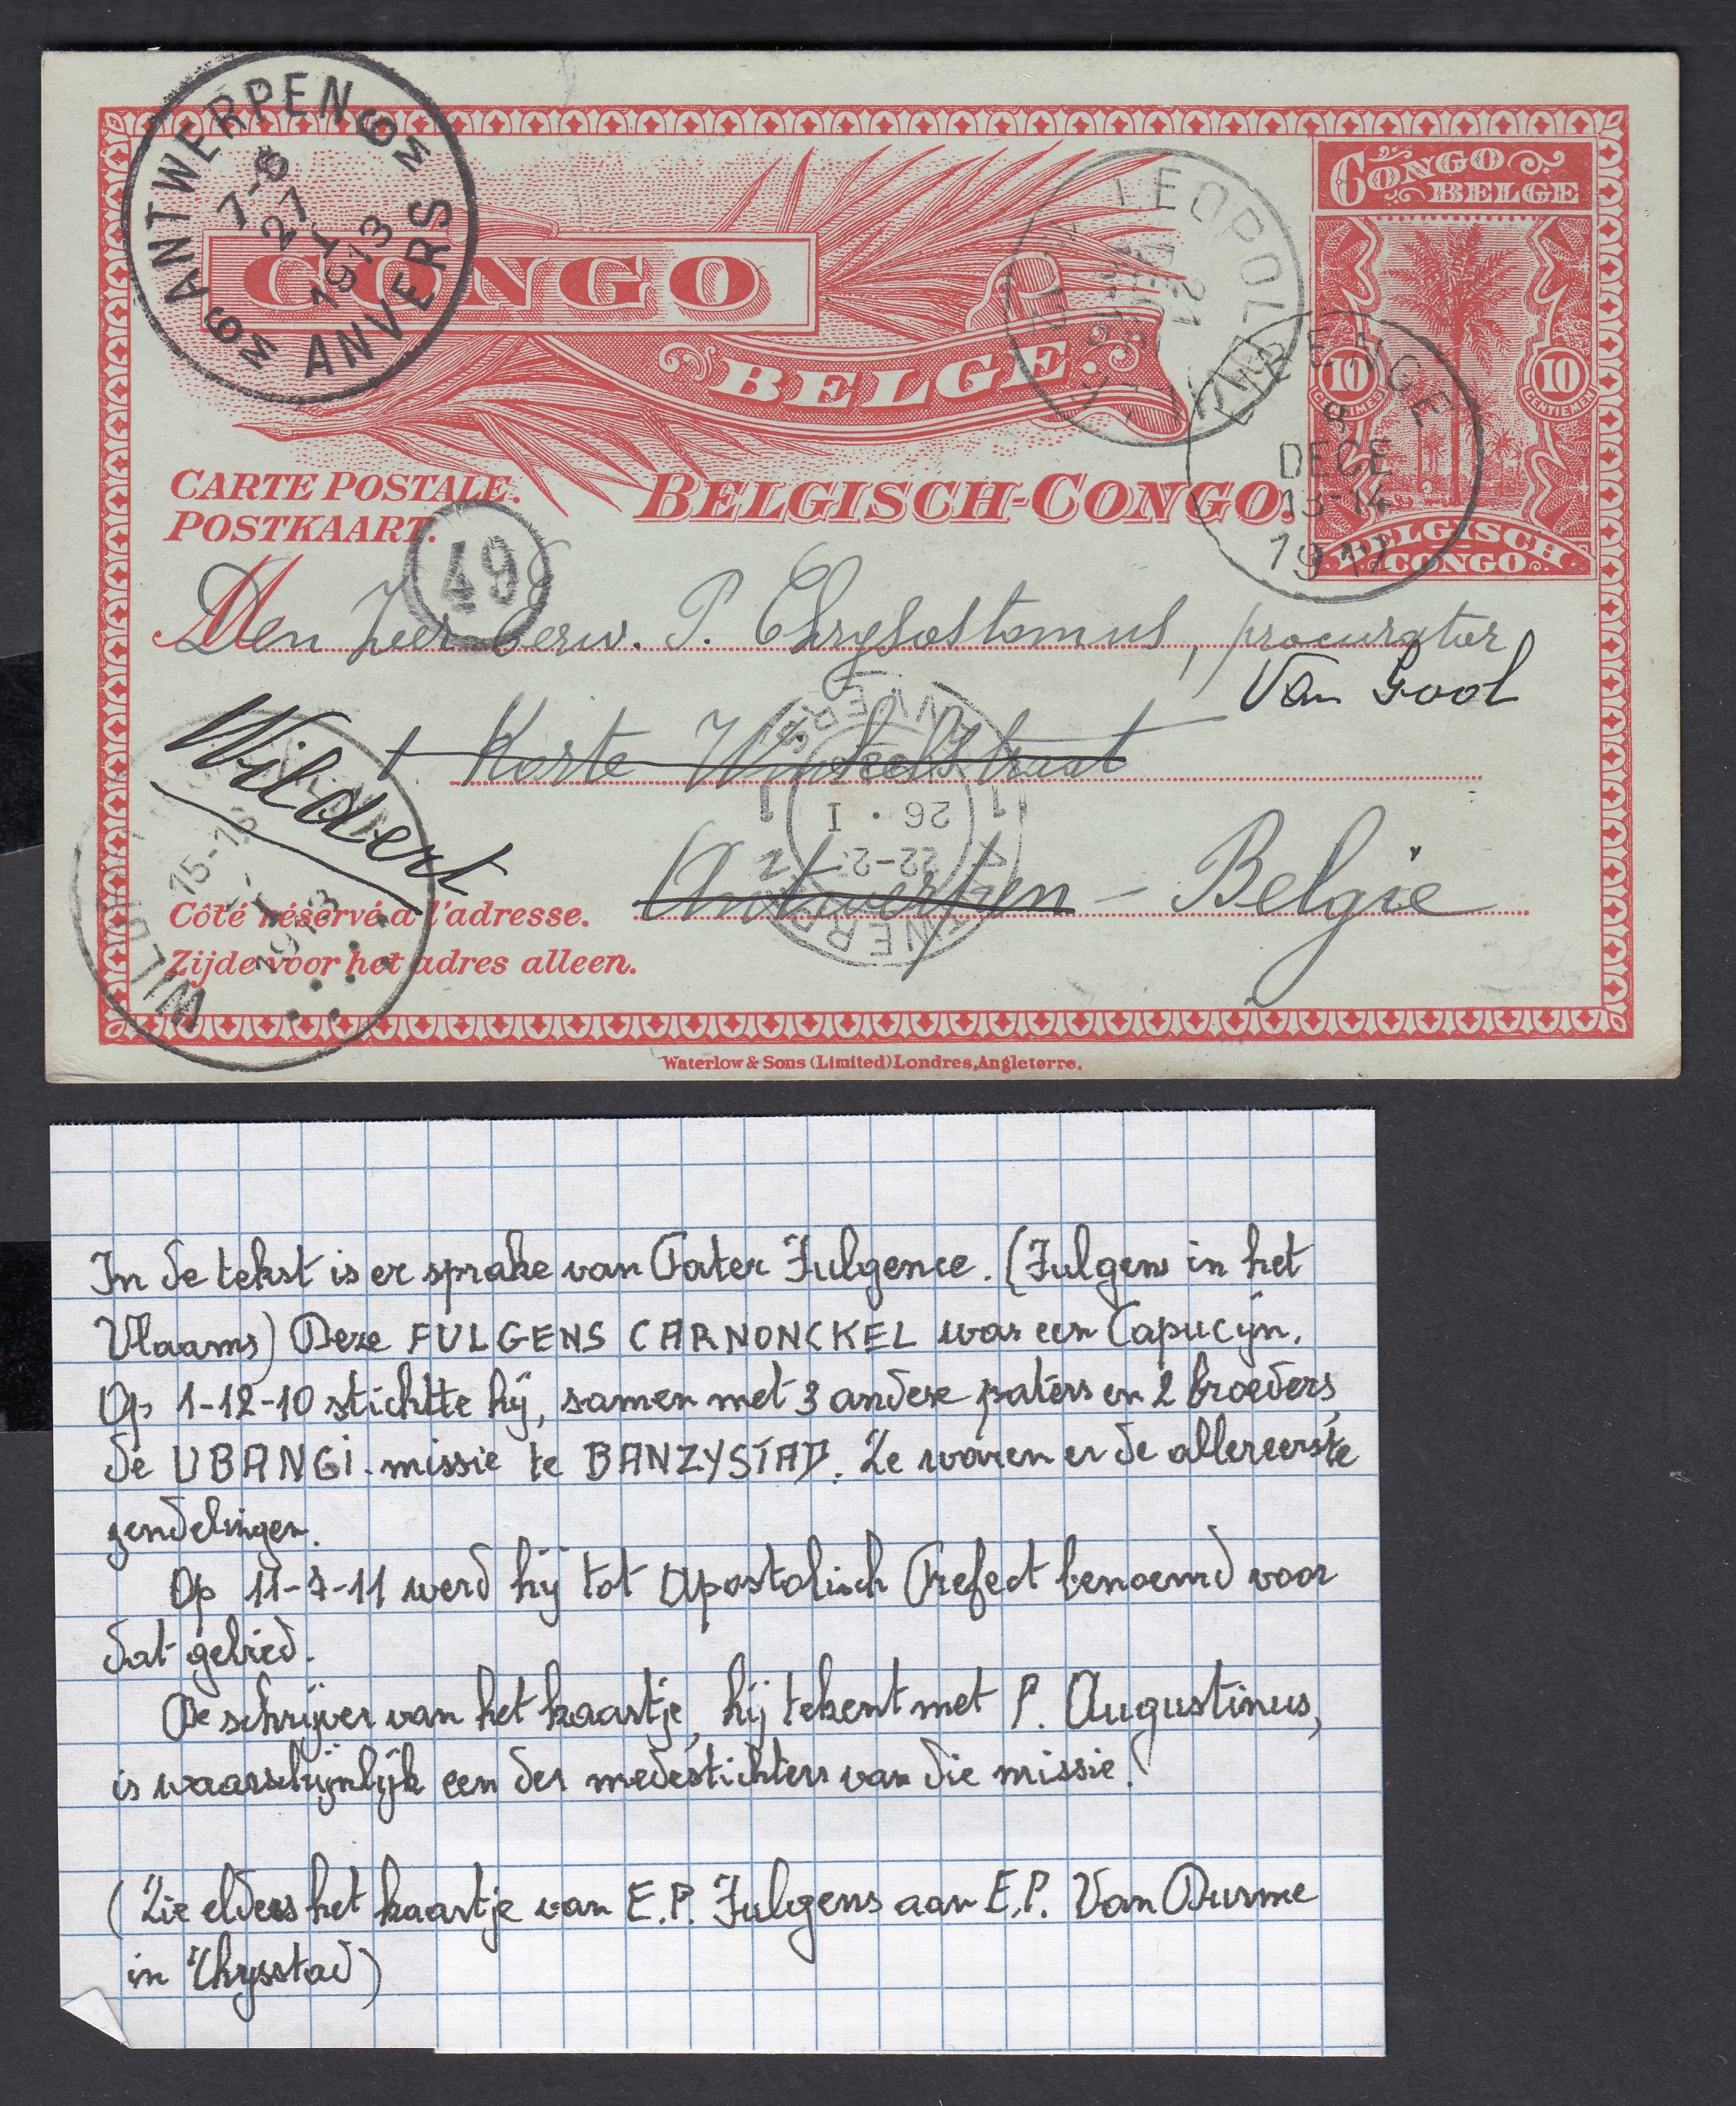 ANTWERPEN
6M
7-8
27
I
1913
6M
ANVERS
CONGO
BELGE.
LEOPOLDVILLE
21
DECE
CONGO
BELGE
10
CENTIMES
10
CENTIEMEN
BELGISCH
CONGO
LIBENGE
9
DECE
13-14
1912
CARTE POSTALE.
POSTKAART.
BELGISCH-CONGO.
49
M
Den Zeer Eerw. P. Chrysostomus, procurator
Van Gool
Korte Winkelstraat
Wildert
ANTWERPEN
22-2
26 . I
1 1
ANVERS
Antwerpen - België
15-16
I
1913
Côté réservé a l'adresse.
Zijde voor het adres alleen.
Waterlow & Sons (Limited) Londres, Angleterre.
In de tekst is er sprake van Pater Fulgence. (Fulgens in het
Vlaams) Deze FULGENS CARNONCKEL was een Capucijn.
Op 1-12-10 stichtte hij, samen met 3 andere paters en 2 broeders,
de UBANGI-missie te BANZYSTAD. Ze waren er de allereerste
zendelingen.
Op 11-7-11 werd hij tot Apostolisch Prefect benoemd voor
dat gebied.
De schrijver van het kaartje, hij tekent met P. Augustinus,
is waarschijnlijk een der medestichters van die missie.
(Zie elders het kaartje van E.P. Fulgens aan E.P. Van Durme
in Thysstad)